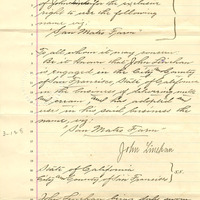 of John for the exclusive
right to use the following
name, viz:
"San Mateo Farm"
To all whom it may concern
Be it known that John Linehan
is engaged in the City and County
of San Francisco, State of California
in the business of delivering milk
and cream and has adopted
use in his said business the
name, viz:
"San Mateo Farm"
John Linehan
State of California
City and County of San Francisco } ss.
John Linehan being duly sworn